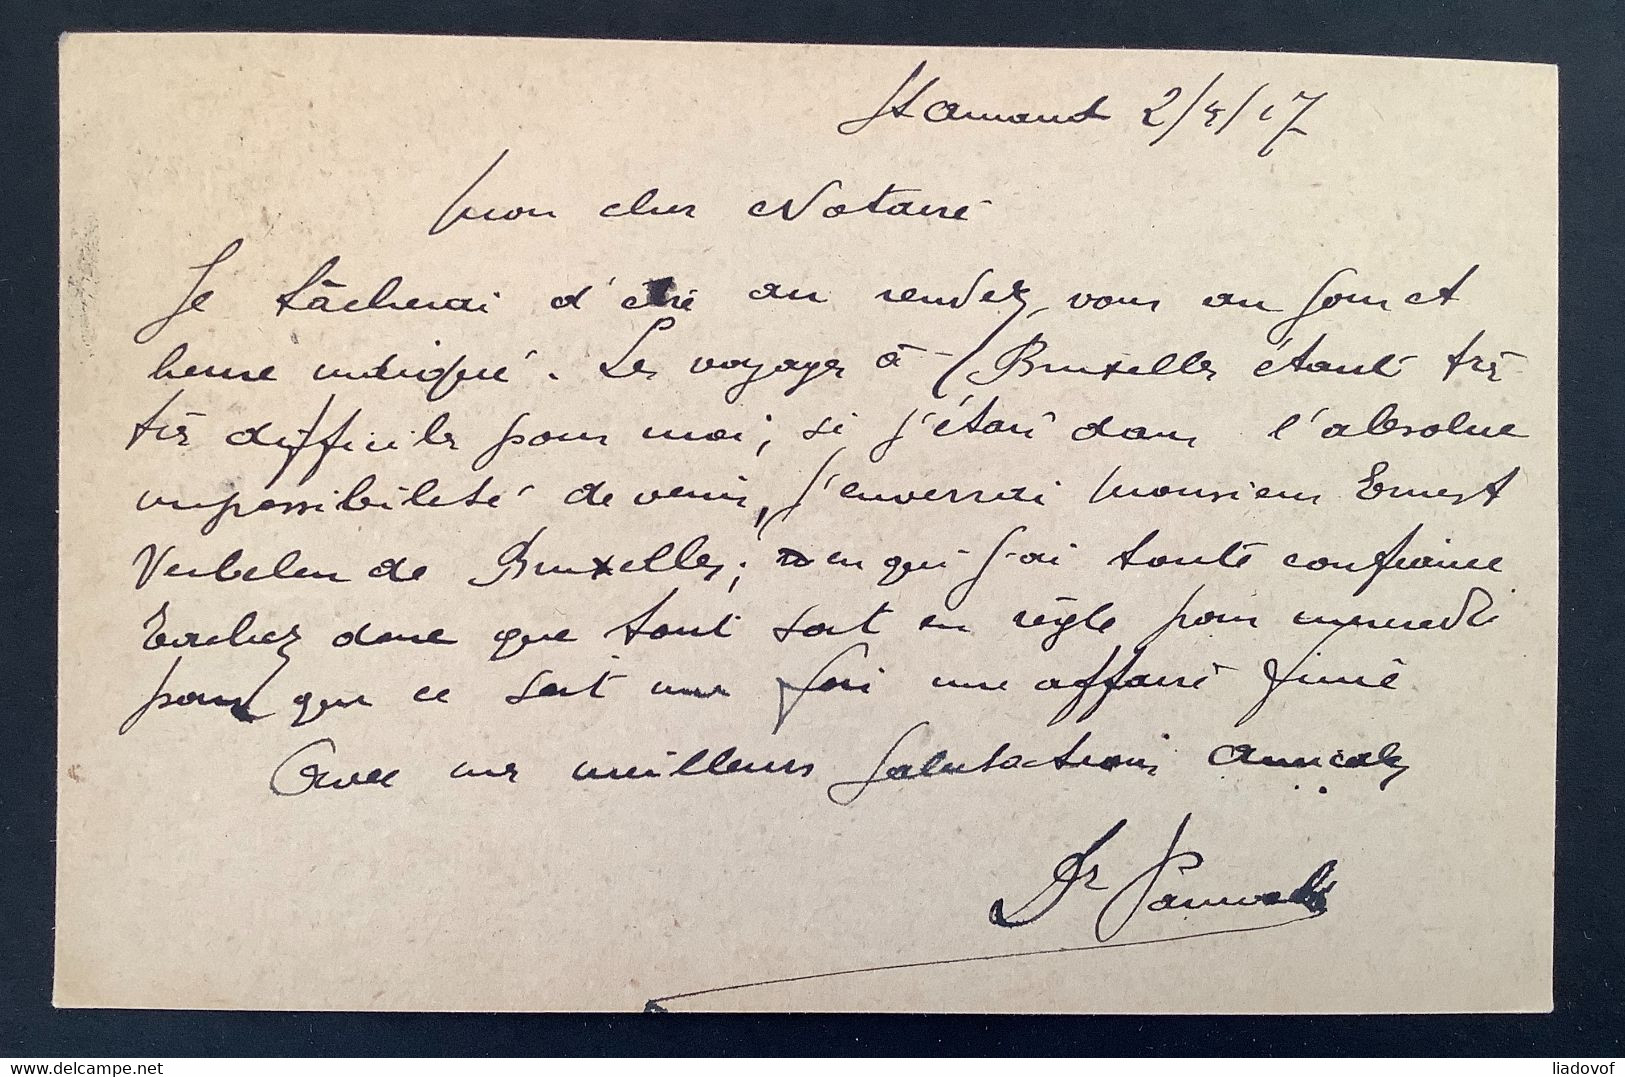 St Amand 2/5/17
Mon cher Notaire
Je tâcherai d'être au rendez-vous au jour et
heure indiqué. Les voyages à Bruxelles étant très
très difficiles pour moi, si j'étais dans l'absolue
impossibilité de venir, j'enverrai Monsieur Ernest
Verbelen de Bruxelles, en qui j'ai toute confiance
Tachez donc que tout soit en règle pour mercredi
pour que ce soit une foi une affaire finie
Avec mes meilleurs salutations amicales
Dr Pauwels
delcampe.net
liadovof